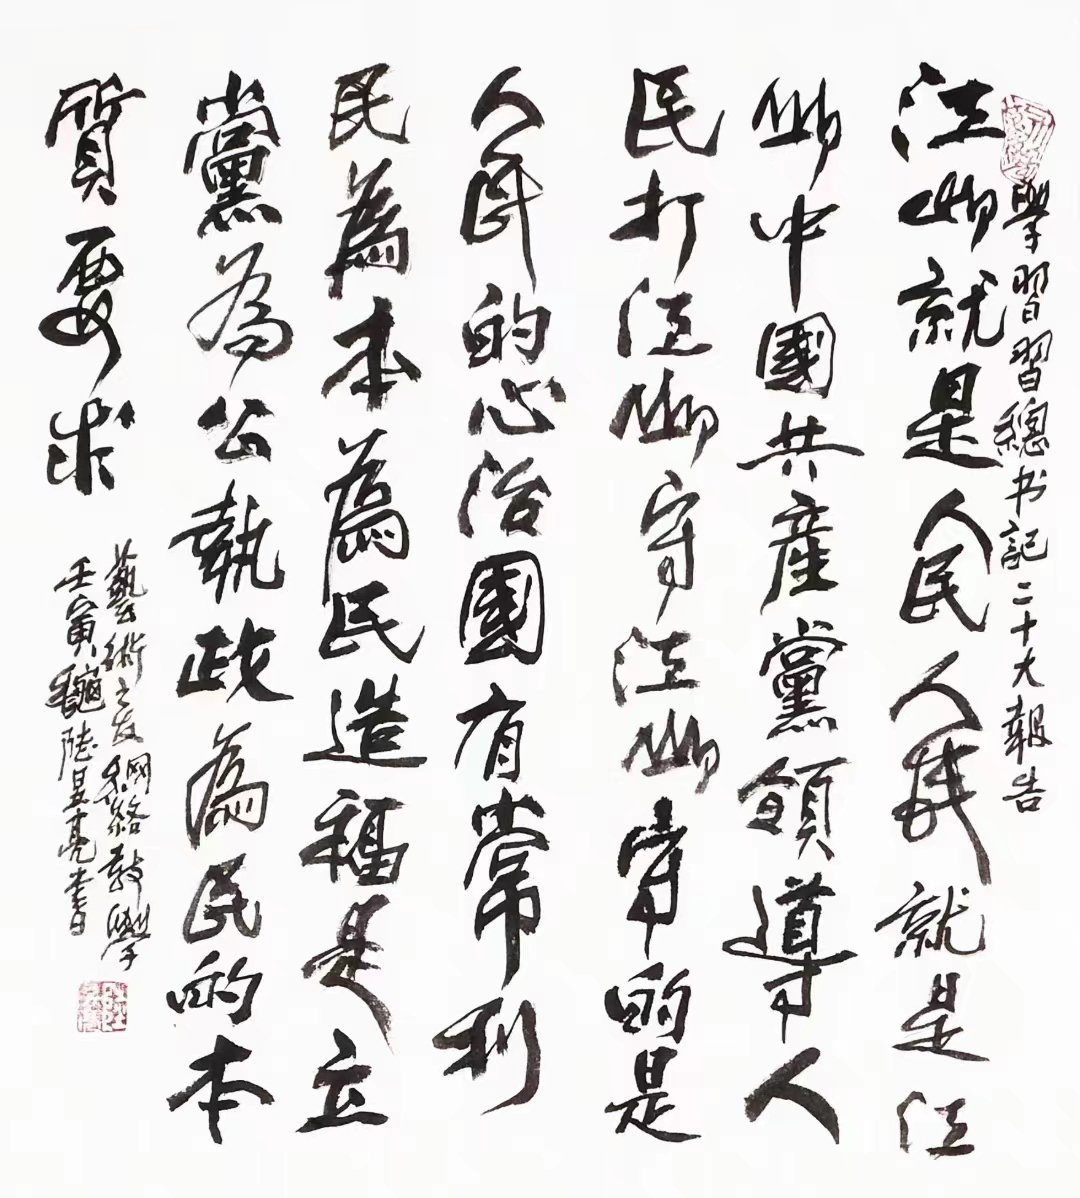 學習習總书記二十大報告
江山就是人民人民就是江
山中國共產黨領導人
民打江山守江山守的是
人民的心治國有常利
民為本為民造福是立
黨為公執政為民的本
質要求
藝術之友網絡教學
壬寅龝陸昱亮書